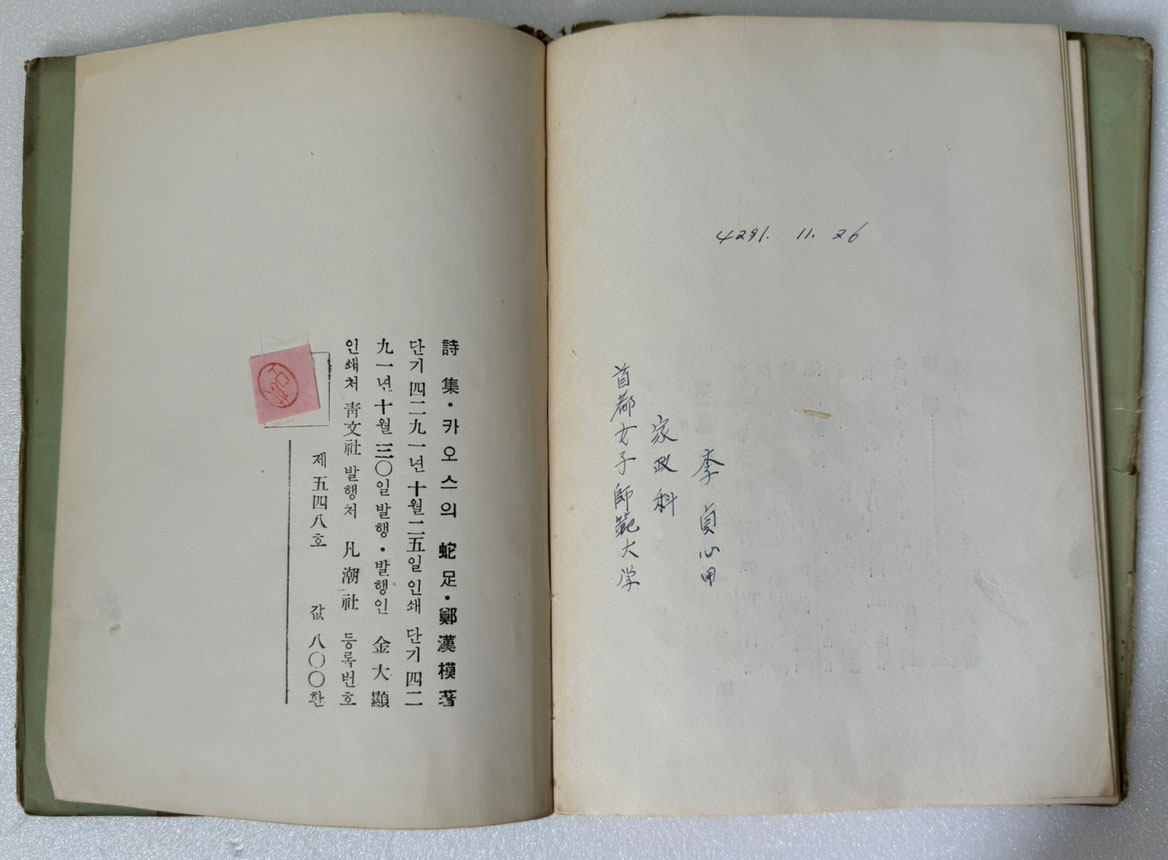 4291. 11. 26
李 貞心
家政科
首都女子師範大学
詩集·카오스의 蛇足·鄭漢模著
단기 四二九一년 十월 二五일 인쇄 단기 四二
九一년 十월 三〇일 발행·발행인 金大顯
인쇄처 靑文社 발행처 凡潮社 등록번호
제 五四八호 값 八〇〇환